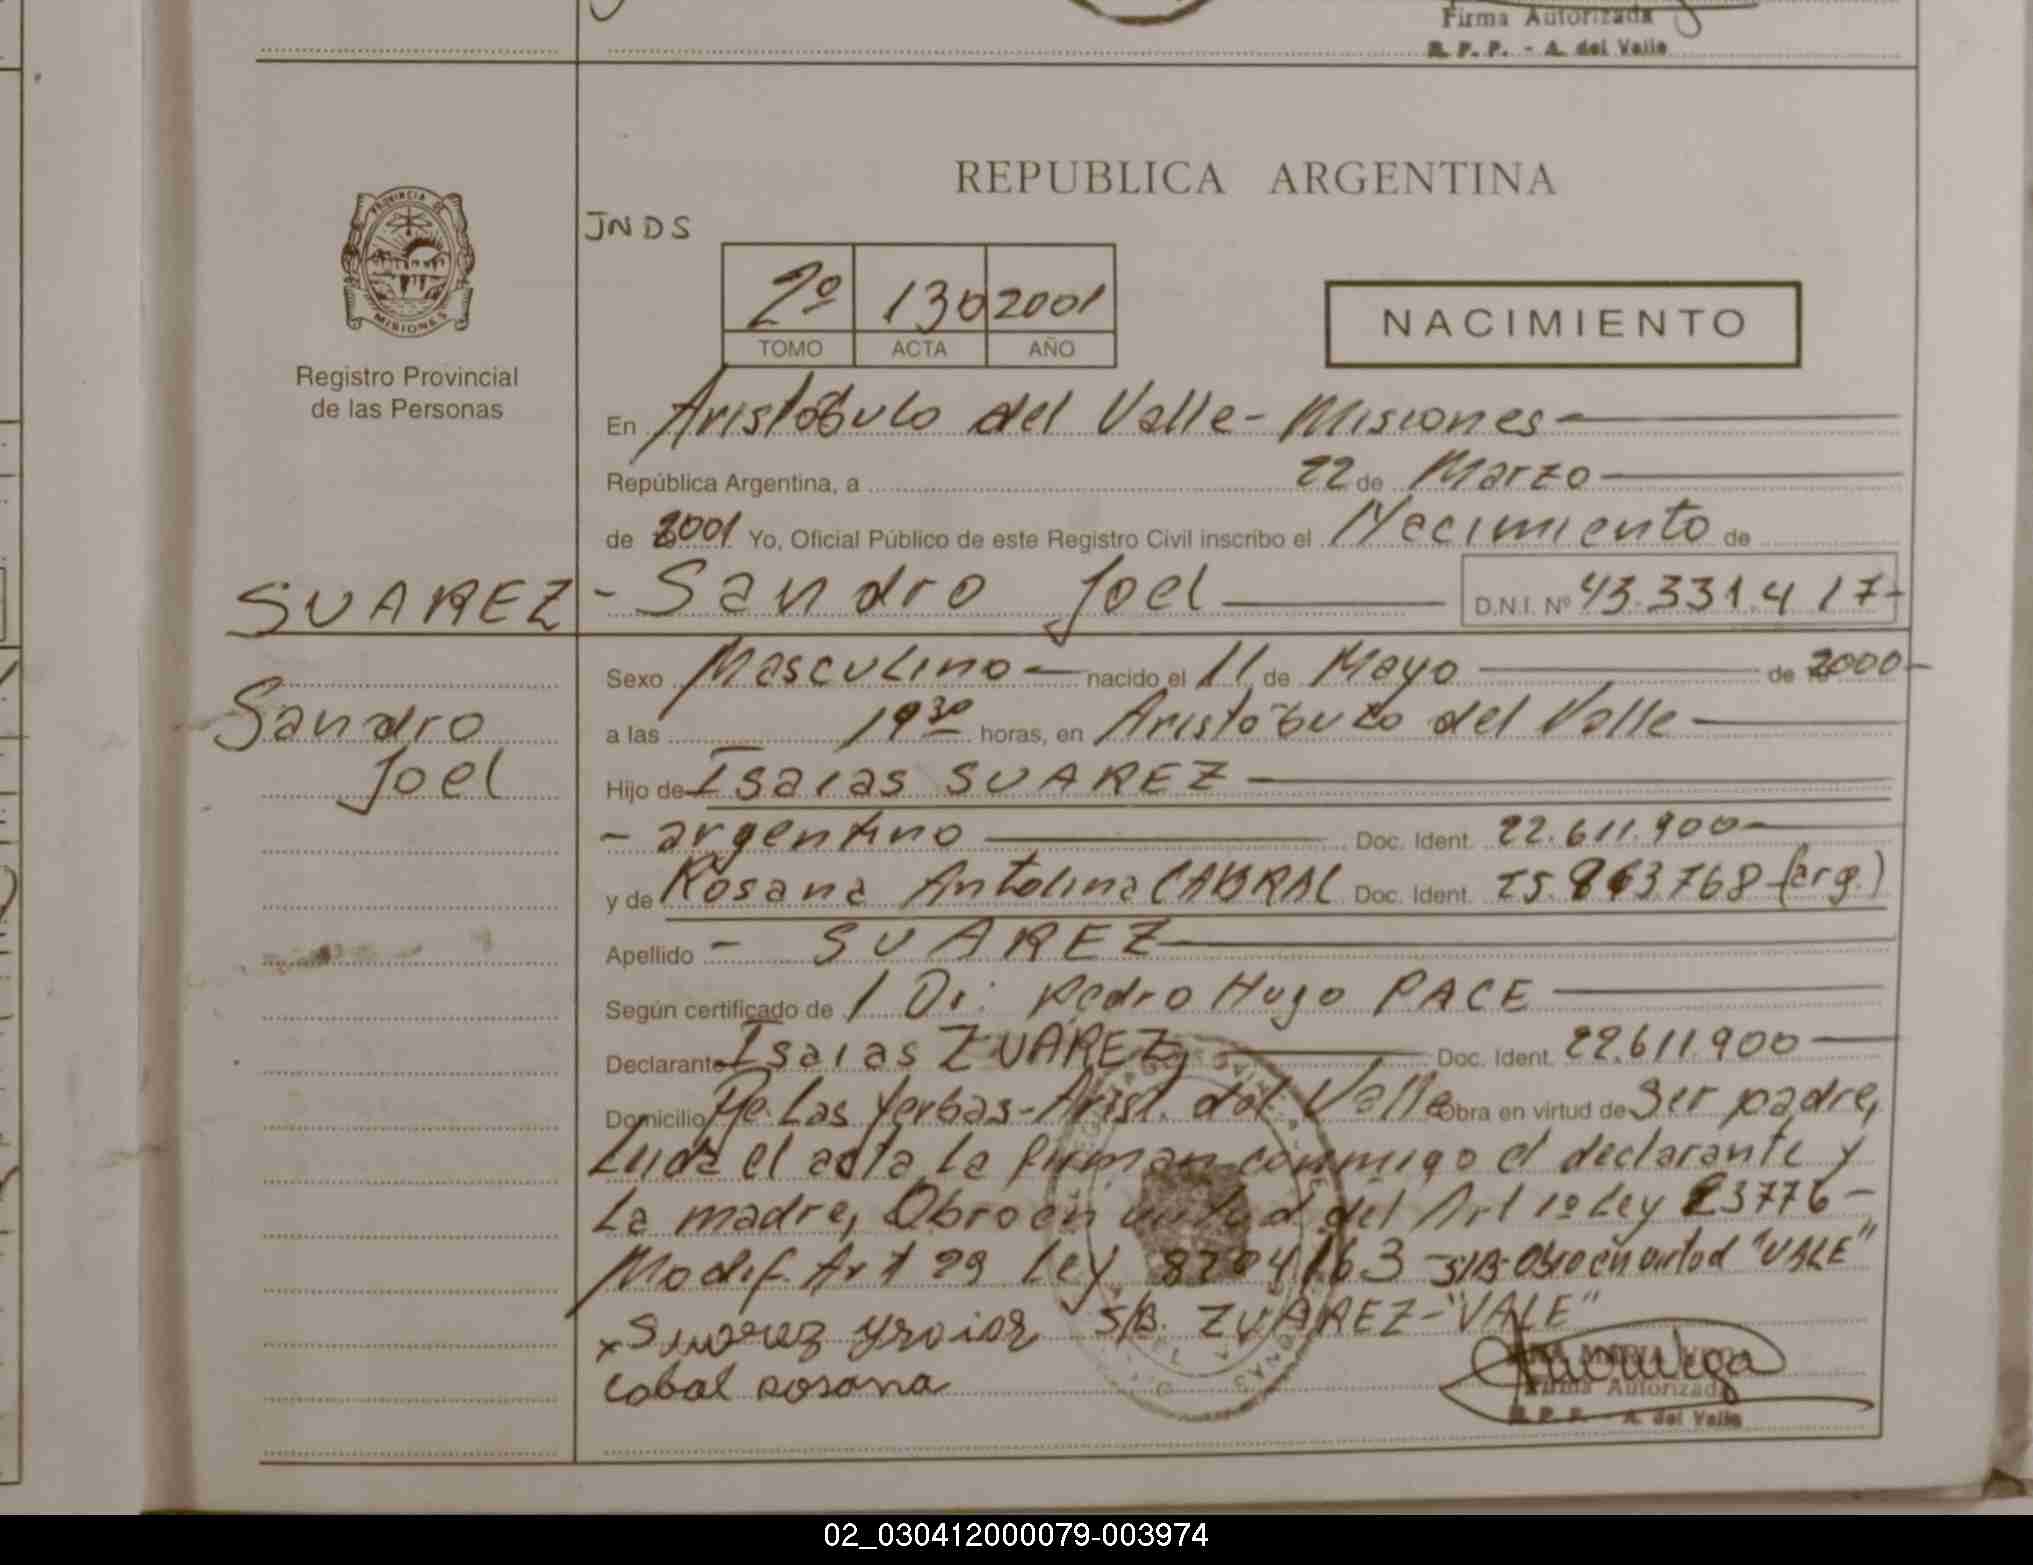 Firma Autorizada
R. P. P. - A. del Valle
REPUBLICA ARGENTINA
JNDS
PROVINCIA DE
MISIONES
2º 130 2001
TOMO ACTA AÑO
NACIMIENTO
Registro Provincial
de las Personas
En Aristóbulo del Valle - Misiones
República Argentina, a 22 de Marzo
de 2001 Yo, Oficial Público de este Registro Civil inscribo el Nacimiento de
SUAREZ - Sandro Joel D.N.I. Nº 43.331.417-
Sexo Masculino nacido el 11 de Mayo de 2000-
Sandro
Joel
a las 19 30 horas, en Aristóbulo del Valle
Hijo de Isaias SUAREZ
- argentino Doc. Ident. 22.611.900-
y de Rosana Antolina CABRAL Doc. Ident. 25.863.768 (arg.)
Apellido - SUAREZ
Según certificado de / Dr. Pedro Hugo PACE
Declarante Isaias ZUAREZ Doc. Ident. 22.611.900
Domicilio Pje. Las Yerbas - Arist. del Valle Obra en virtud de Ser padre,
Luda el acta, la firman conmigo el declarante y
La madre, Obro en virtud del Art 1º Ley 23776 -
Modif. Art 29 Ley 8204/63 - S/B-Obro en virtud "VALE"
x Suarez S/B. ZUAREZ - "VALE"
cabal rosana
Firma Autorizada
R. P. P. - A. del Valle
02_030412000079-003974